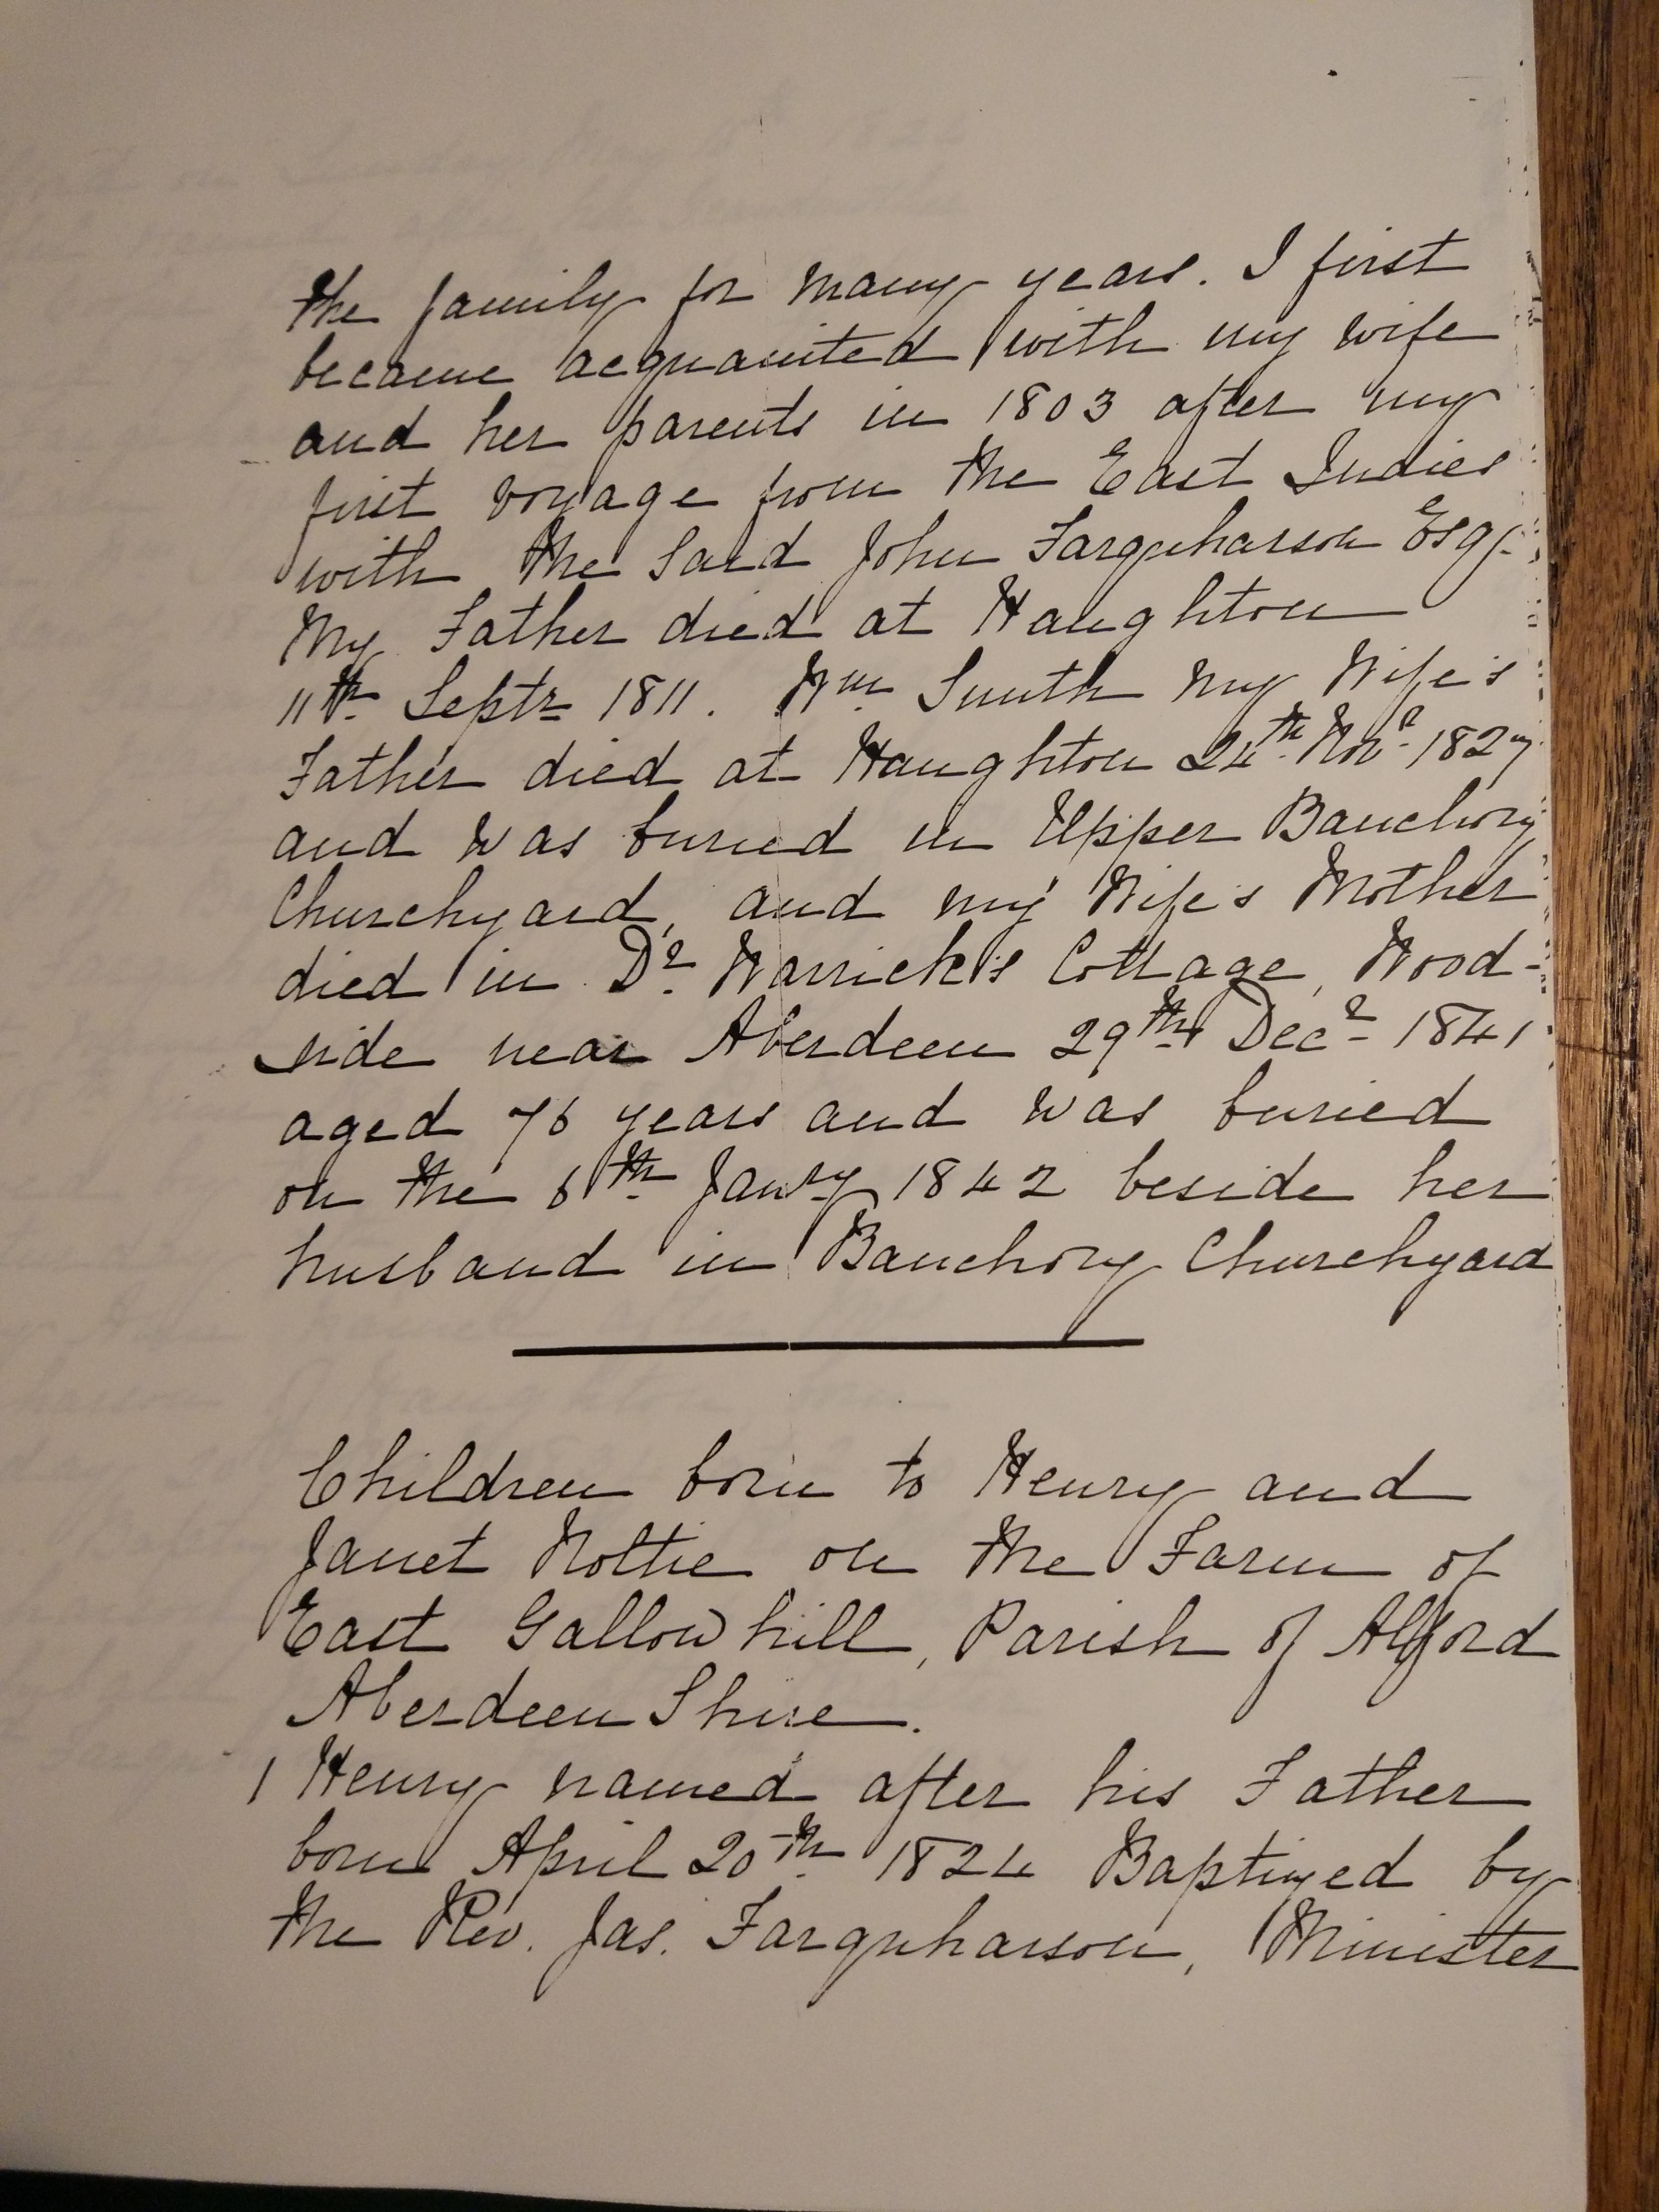 the family for many years. I first
became acquainted with my wife
and her parents in 1803 after my
first voyage from the East Indies
with the said John Farquharson Esqr.
My Father died at Haughton
11th Septr 1811. Wm Smith my Wife's
Father died at Haughton 24th Novr 1827
and was buried in Upper Banchory
Churchyard, and my Wife's Mother
died in Dr. Warrick's Cottage, Wood-
side near Aberdeen 29th Decr 1841
aged 76 years and was buried
on the 6th Janry 1842 beside her
husband in Banchory Churchyard
Children born to Henry and
Janet Nottie on the Farm of
East Gallowhill, Parish of Alford
Aberdeen Shire.
1 Henry named after his Father
born April 20th 1824 Baptized by
the Rev. Jas. Farquharson, Minister